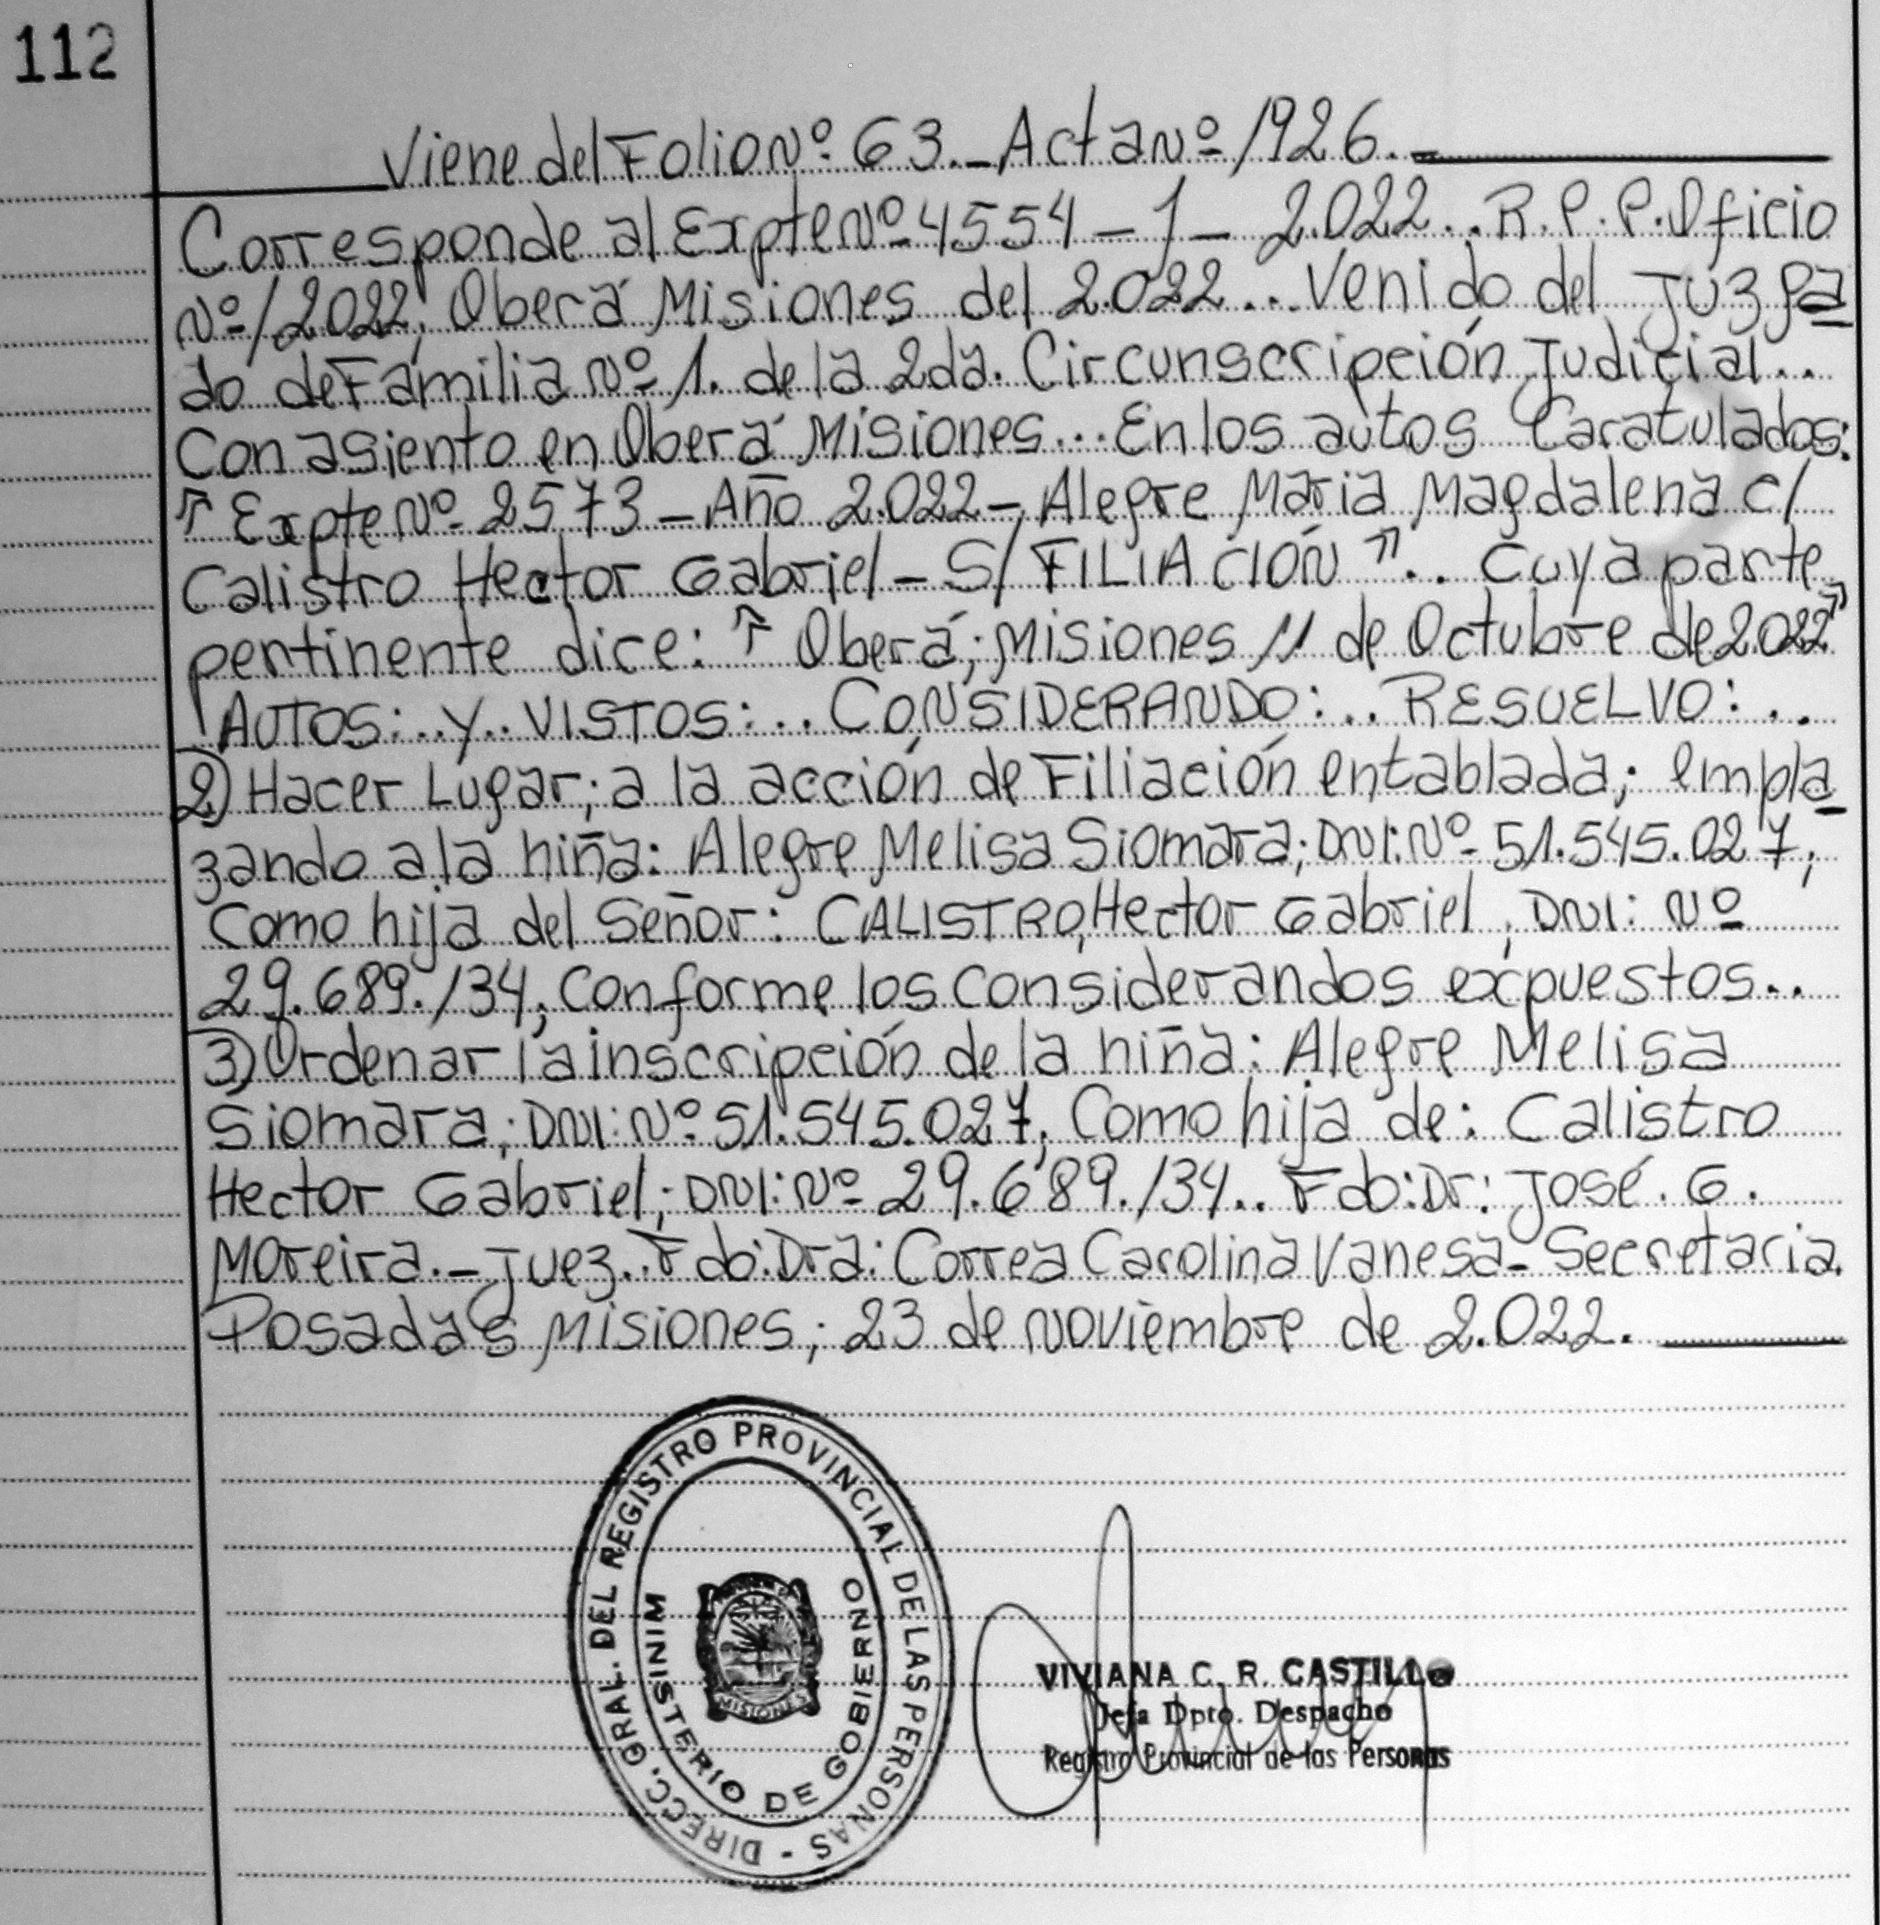 112
Viene del Folio Nº 63._ Acta Nº 1926._
Corresponde al Expte Nº 4554 - J - 2.022.. R.P.P. Oficio
Nº/2022; Oberá Misiones del 2.022... Venido del Juzga
do de Familia Nº 1. de la 2da. Circunscripción Judicial..
Con asiento en Oberá Misiones... En los autos Caratulados:
" Expte Nº 2573 - Año 2.022 - Alegre Maria Magdalena c/
Calistro Hector Gabriel - S/ FILIACIÓN ".. Cuya parte
pertinente dice: " Oberá; Misiones 11 de Octubre de 2.022"
AUTOS:.. y.. VISTOS:.. CONSIDERANDO:.. RESUELVO:..
2) Hacer Lugar; a la acción de Filiación entablada; empla
zando a la niña: Alegre Melisa Siomara; DNI: Nº 51.545.027;
Como hija del Señor: CALISTRO, Hector Gabriel; DNI: Nº
29.689.134; Conforme los Considerandos expuestos..
3) Ordenar la inscripción de la niña: Alegre Melisa
Siomara; DNI: Nº 51.545.027; Como hija de: Calistro
Hector Gabriel; DNI: Nº 29.689.134.. Fdo: Dr: José. G.
Moreira.- Juez.. Fdo: Dra: Correa Carolina Vanesa- Secretaria.
Posadas Misiones; 23 de Noviembre de 2.022.
DIRECC. GRAL. DEL REGISTRO PROVINCIAL DE LAS PERSONAS -
MINISTERIO DE GOBIERNO
MISIONES
VIVIANA C. R. CASTILLO
Jefa Dpto. Despacho
Registro Provincial de las Personas